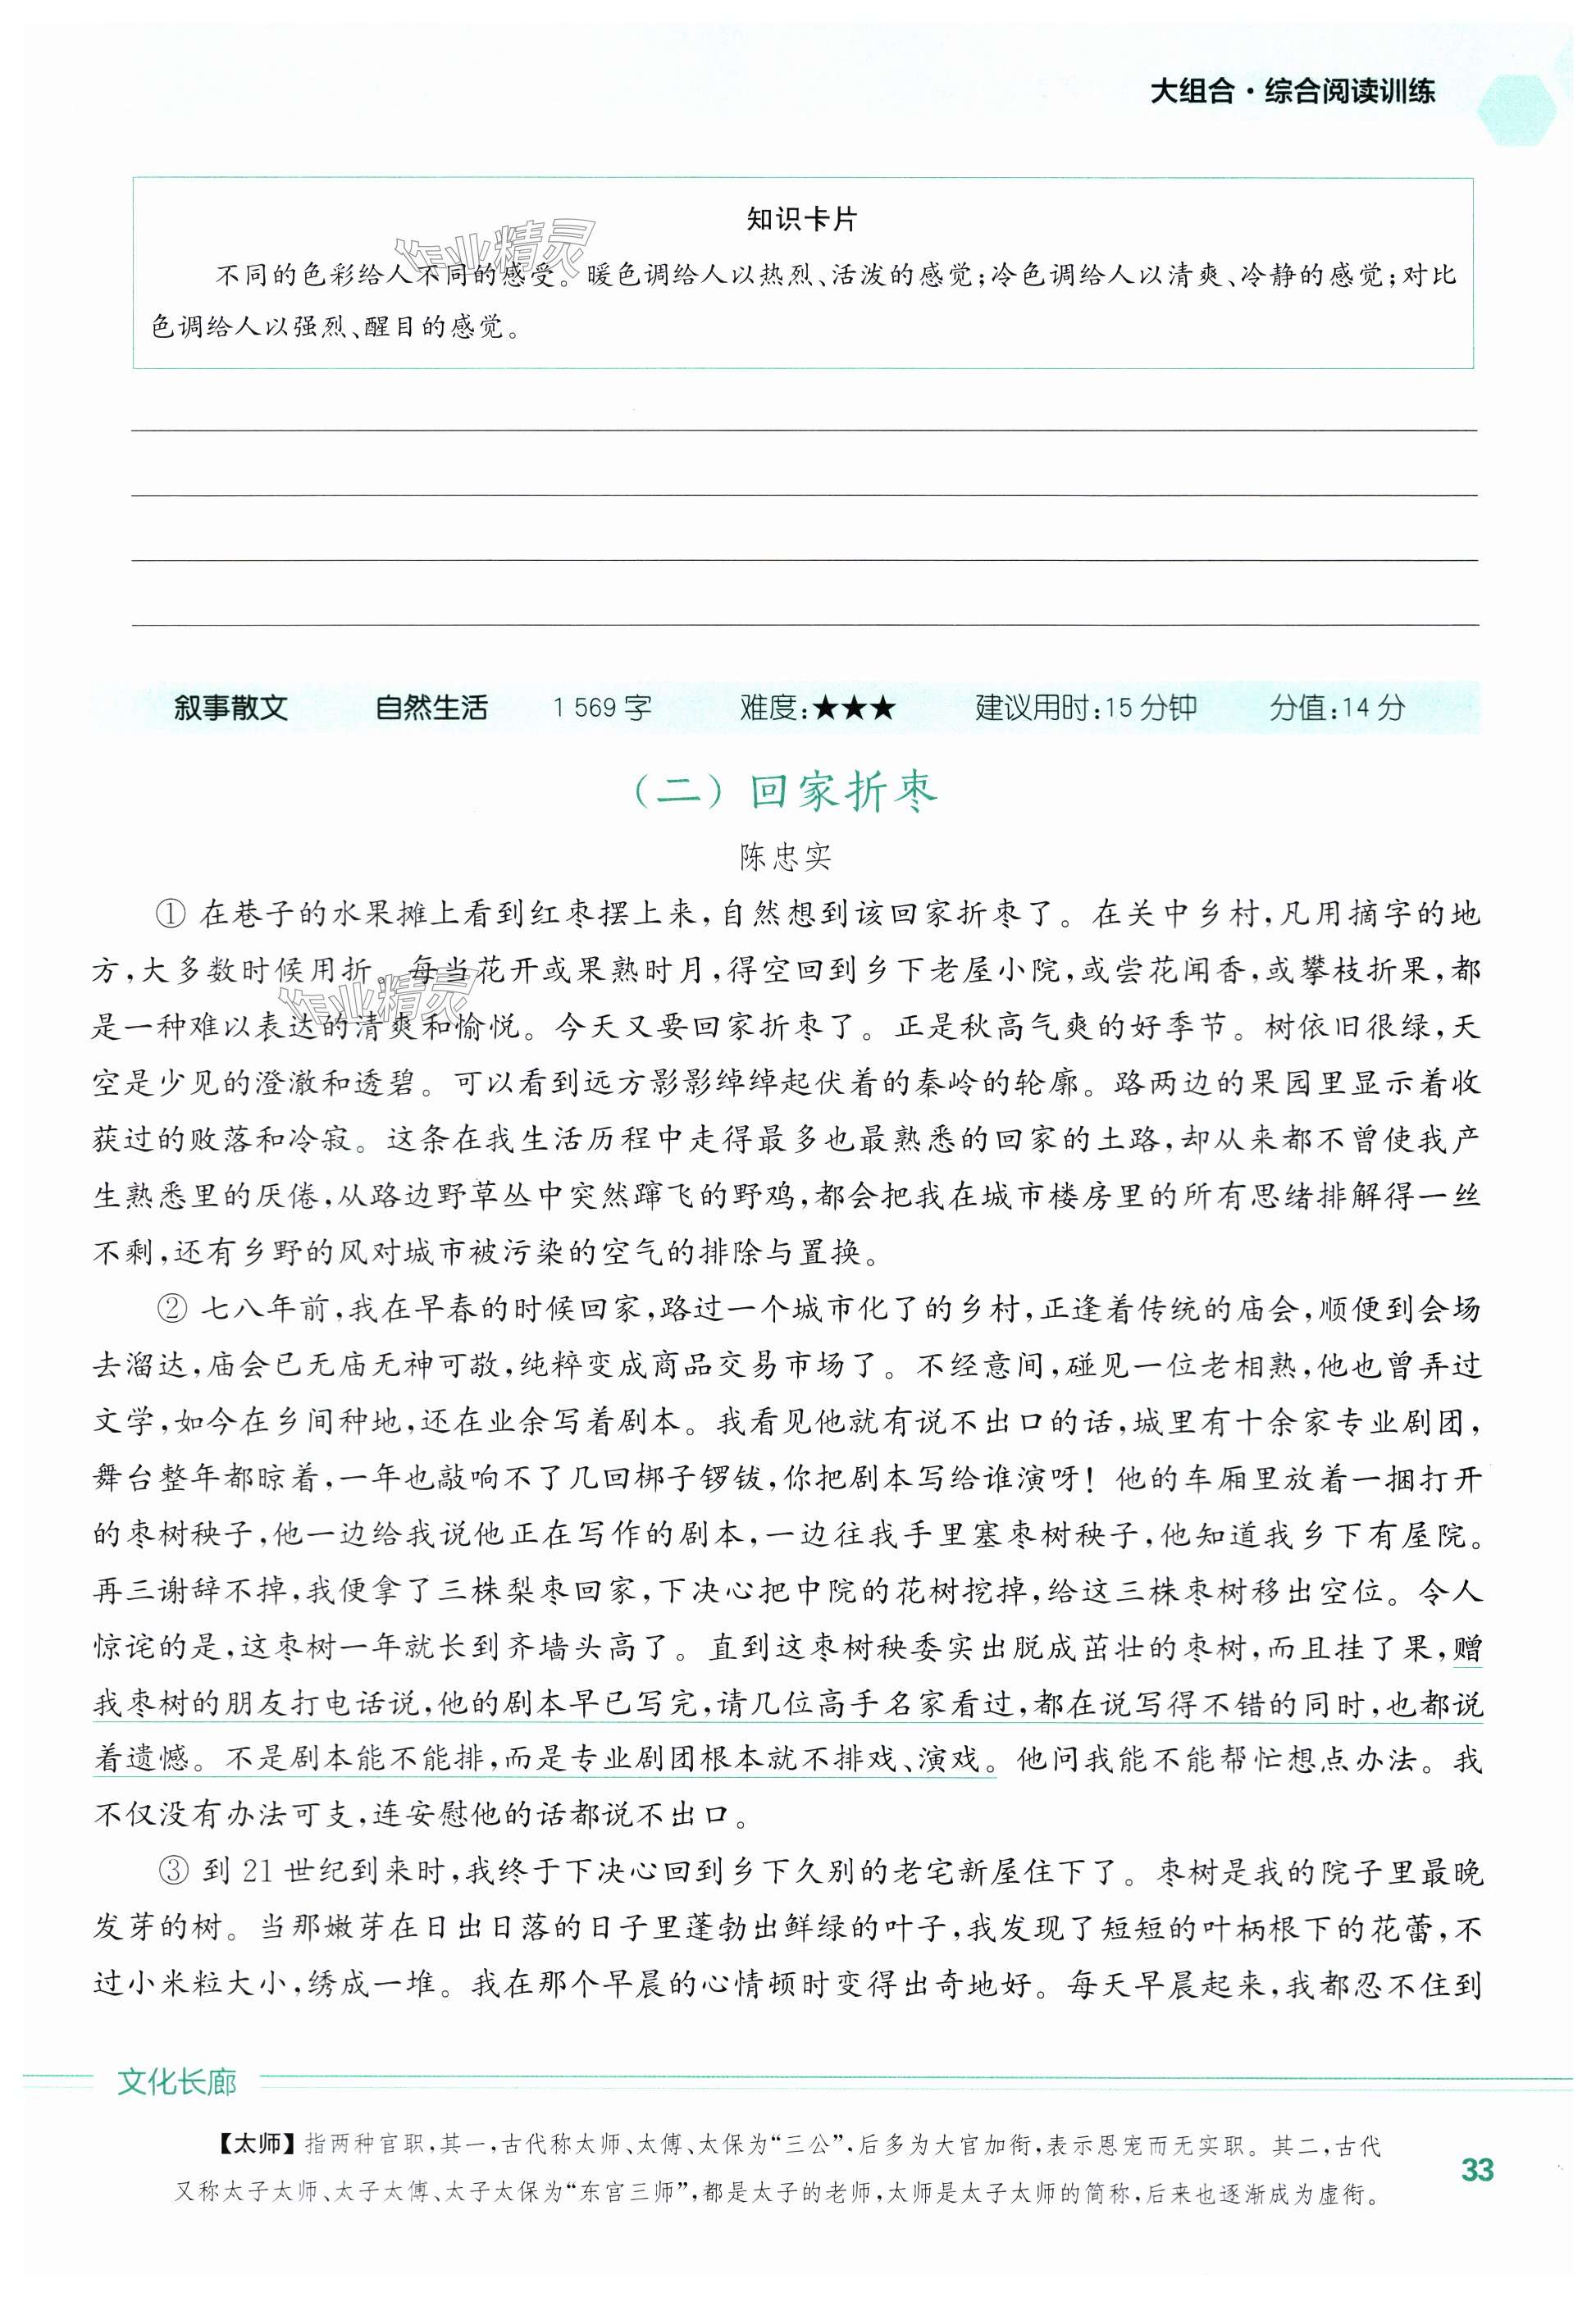 大组合·综合阅读训练
知识卡片
不同的色彩给人不同的感受。暖色调给人以热烈、活泼的感觉；冷色调给人以清爽、冷静的感觉；对比
色调给人以强烈、醒目的感觉。
作业精灵
叙事散文 自然生活 1 569 字 难度：★★★ 建议用时：15 分钟 分值：14 分
（二）回家折枣
陈忠实
① 在巷子的水果摊上看到红枣摆上来，自然想到该回家折枣了。在关中乡村，凡用摘字的地
方，大多数时候用折。每当花开或果熟时月，得空回到乡下老屋小院，或尝花闻香，或攀枝折果，都
作业精灵
是一种难以表达的清爽和愉悦。今天又要回家折枣了。正是秋高气爽的好季节。树依旧很绿，天
空是少见的澄澈和透碧。可以看到远方影影绰绰起伏着的秦岭的轮廓。路两边的果园里显示着收
获过的败落和冷寂。这条在我生活历程中走得最多也最熟悉的回家的土路，却从来都不曾使我产
生熟悉里的厌倦，从路边野草丛中突然蹿飞的野鸡，都会把我在城市楼房里的所有思绪排解得一丝
不剩，还有乡野的风对城市被污染的空气的排除与置换。
② 七八年前，我在早春的时候回家，路过一个城市化了的乡村，正逢着传统的庙会，顺便到会场
去溜达，庙会已无庙无神可敬，纯粹变成商品交易市场了。不经意间，碰见一位老相熟，他也曾弄过
文学，如今在乡间种地，还在业余写着剧本。我看见他就有说不出口的话，城里有十余家专业剧团，
舞台整年都晾着，一年也敲响不了几回梆子锣钹，你把剧本写给谁演呀！他的车厢里放着一捆打开
的枣树秧子，他一边给我说他正在写作的剧本，一边往我手里塞枣树秧子，他知道我乡下有屋院。
再三谢辞不掉，我便拿了三株梨枣回家，下决心把中院的花树挖掉，给这三株枣树移出空位。令人
惊诧的是，这枣树一年就长到齐墙头高了。直到这枣树秧委实出脱成茁壮的枣树，而且挂了果，赠
我枣树的朋友打电话说，他的剧本早已写完，请几位高手名家看过，都在说写得不错的同时，也都说
着遗憾。不是剧本能不能排，而是专业剧团根本就不排戏、演戏。他问我能不能帮忙想点办法。我
不仅没有办法可支，连安慰他的话都说不出口。
③ 到 21 世纪到来时，我终于下决心回到乡下久别的老宅新屋住下了。枣树是我的院子里最晚
发芽的树。当那嫩芽在日出日落的日子里蓬勃出鲜绿的叶子，我发现了短短的叶柄根下的花蕾，不
过小米粒大小，绣成一堆。我在那个早晨的心情顿时变得出奇地好。每天早晨起来，我都忍不住到
文化长廊
【太师】指两种官职，其一，古代称太师、太傅、太保为“三公”，后多为大官加衔，表示恩宠而无实职。其二，古代
又称太子太师、太子太傅、太子太保为“东宫三师”，都是太子的老师，太师是太子太师的简称，后来也逐渐成为虚衔。
33